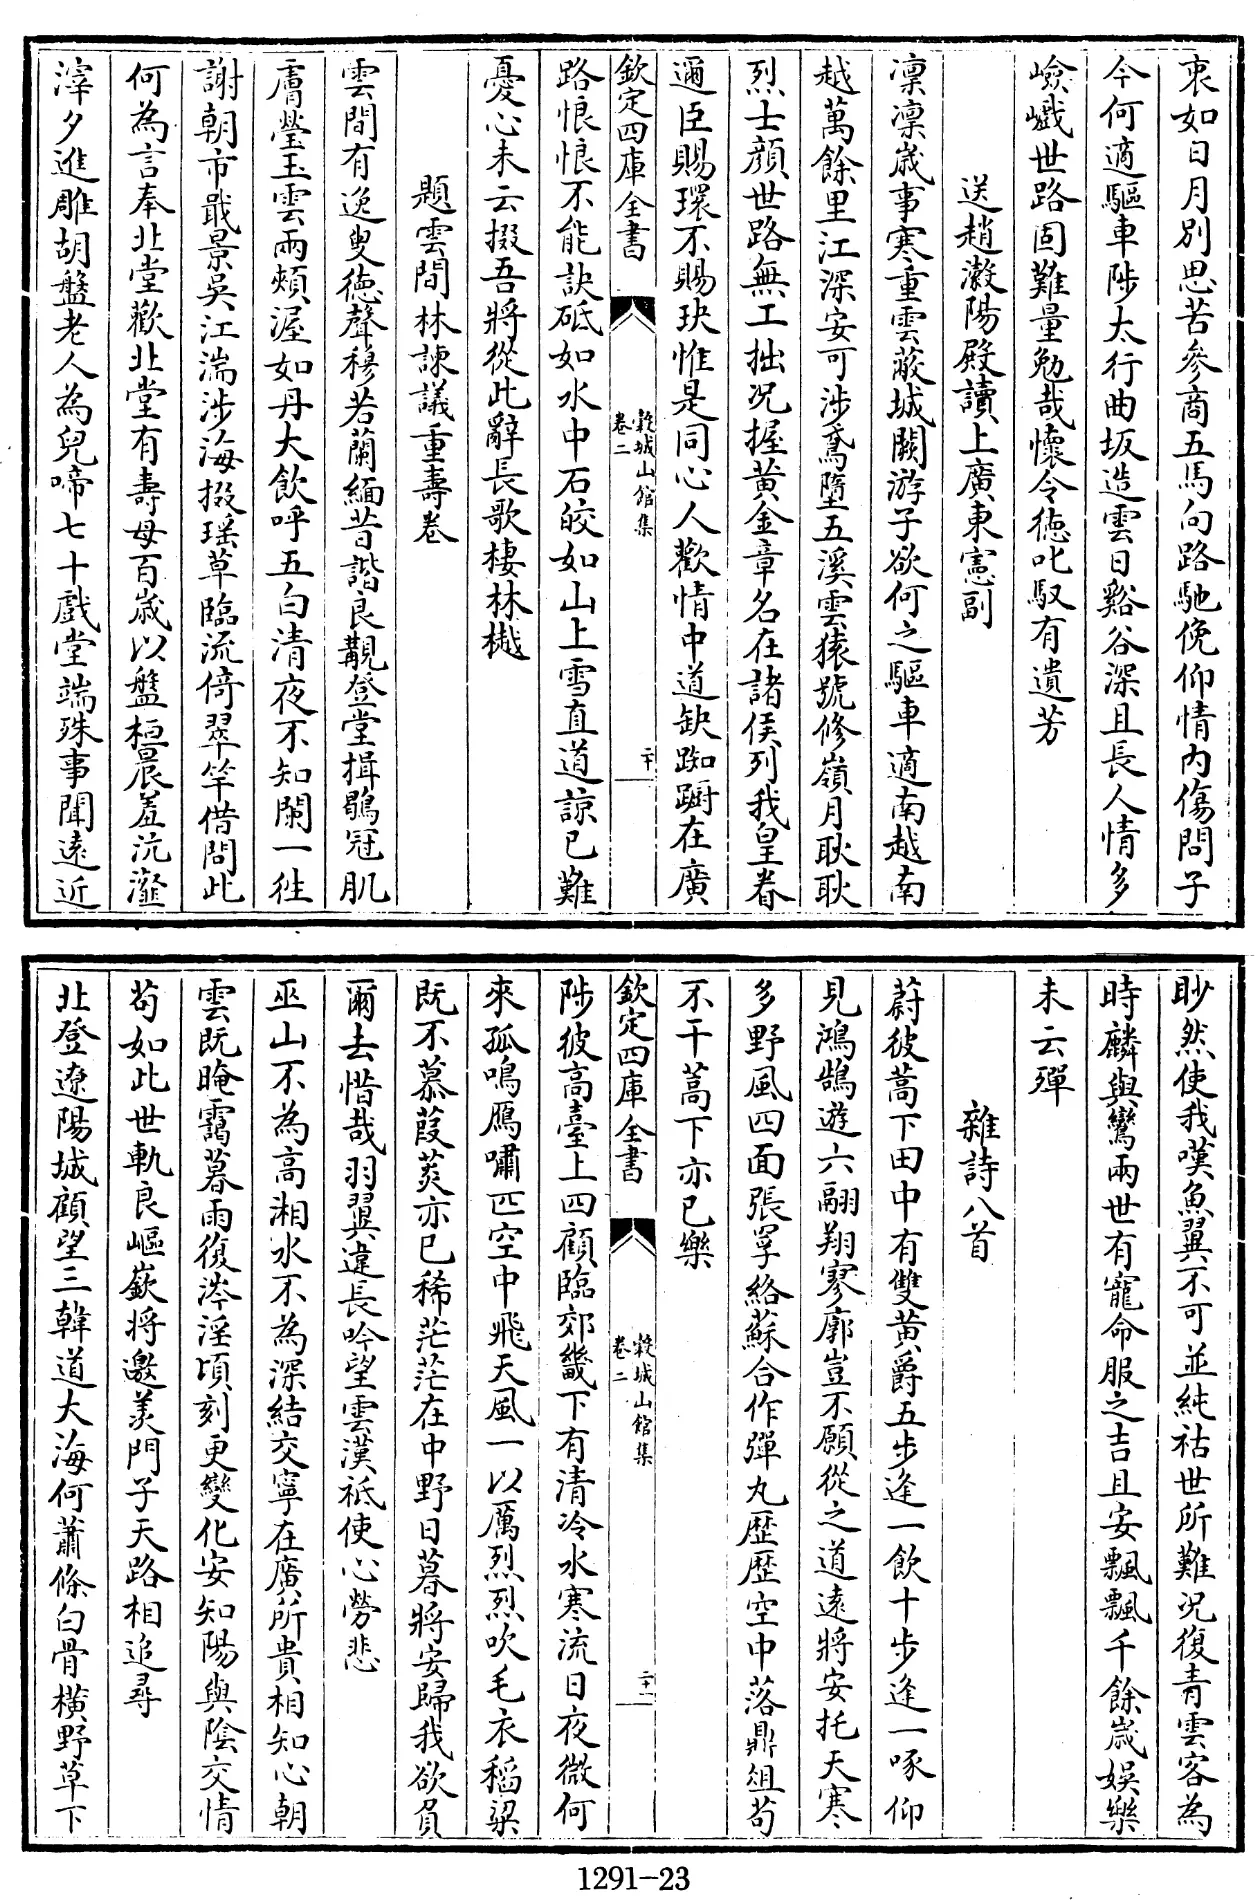 衷如日月別思苦參商五馬向路馳俛仰情內傷問子
今何適驅車陟太行曲坂造雲日谿谷深且長人情多
嶮巇世路固難量勉哉懷令徳叱馭有遺芳
送趙瀔陽殿讀上廣東憲副
凛凛歳事寒重雲蔽城闕游子欲何之驅車適南越南
越萬餘里江深安可涉鳶墮五溪雲猿號修嶺月耿耿
烈士顔世路無工拙况握黄金章名在諸侯列我皇眷
邇臣賜環不賜玦惟是同心人歡情中道缺踟蹰在廣
欽定四庫全書
穀城山館集
卷二
二十
路悢悢不能訣砥如水中石皎如山上雪直道諒已難
憂心未云掇吾將從此辭長歌棲林樾
題雲間林諫議重壽卷
雲間有逸叟徳聲穆若蘭緬昔諧良覯登堂揖鶡冠肌
膚瑩玉雲兩頰渥如丹大飲呼五白清夜不知闌一徃
謝朝市戢景吳江湍涉海掇瑶草臨流倚翠竿借問此
何為言奉北堂歡北堂有壽母百歳以盤桓晨羞沆瀣
滓夕進雕胡盤老人為兒啼七十戲堂端殊事聞遠近
眇然使我嘆魚翼不可並純祜世所難况復青雲客為
時麟與鸞兩世有寵命服之吉且安飄飄千餘歳娱樂
未云殫
雜詩八首
蔚彼蒿下田中有雙黄爵五步逢一飲十步逢一啄仰
見鴻鵠遊六翮翔寥廓豈不願從之道遠將安托天寒
多野風四面張罕絡蘇合作彈丸歴歴空中落鼎俎苟
不干蒿下亦已樂
欽定四庫全書
穀城山館集
卷二
二十一
陟彼高臺上四顧臨郊畿下有清泠水寒流日夜微何
來孤鳴鴈嘯匹空中飛天風一以厲烈烈吹毛衣稻粱
既不慕葭菼亦已稀茫茫在中野日暮將安歸我欲負
爾去惜哉羽翼違長吟望雲漢祗使心勞悲
巫山不為高湘水不為深結交寧在廣所貴相知心朝
雲既晻靄暮雨復涔淫頃刻更變化安知陽與陰交情
苟如此世軌良嶇嶔將邀羡門子天路相追尋
北登遼陽城顧望三韓道大海何蕭條白骨横野草下
1291-23